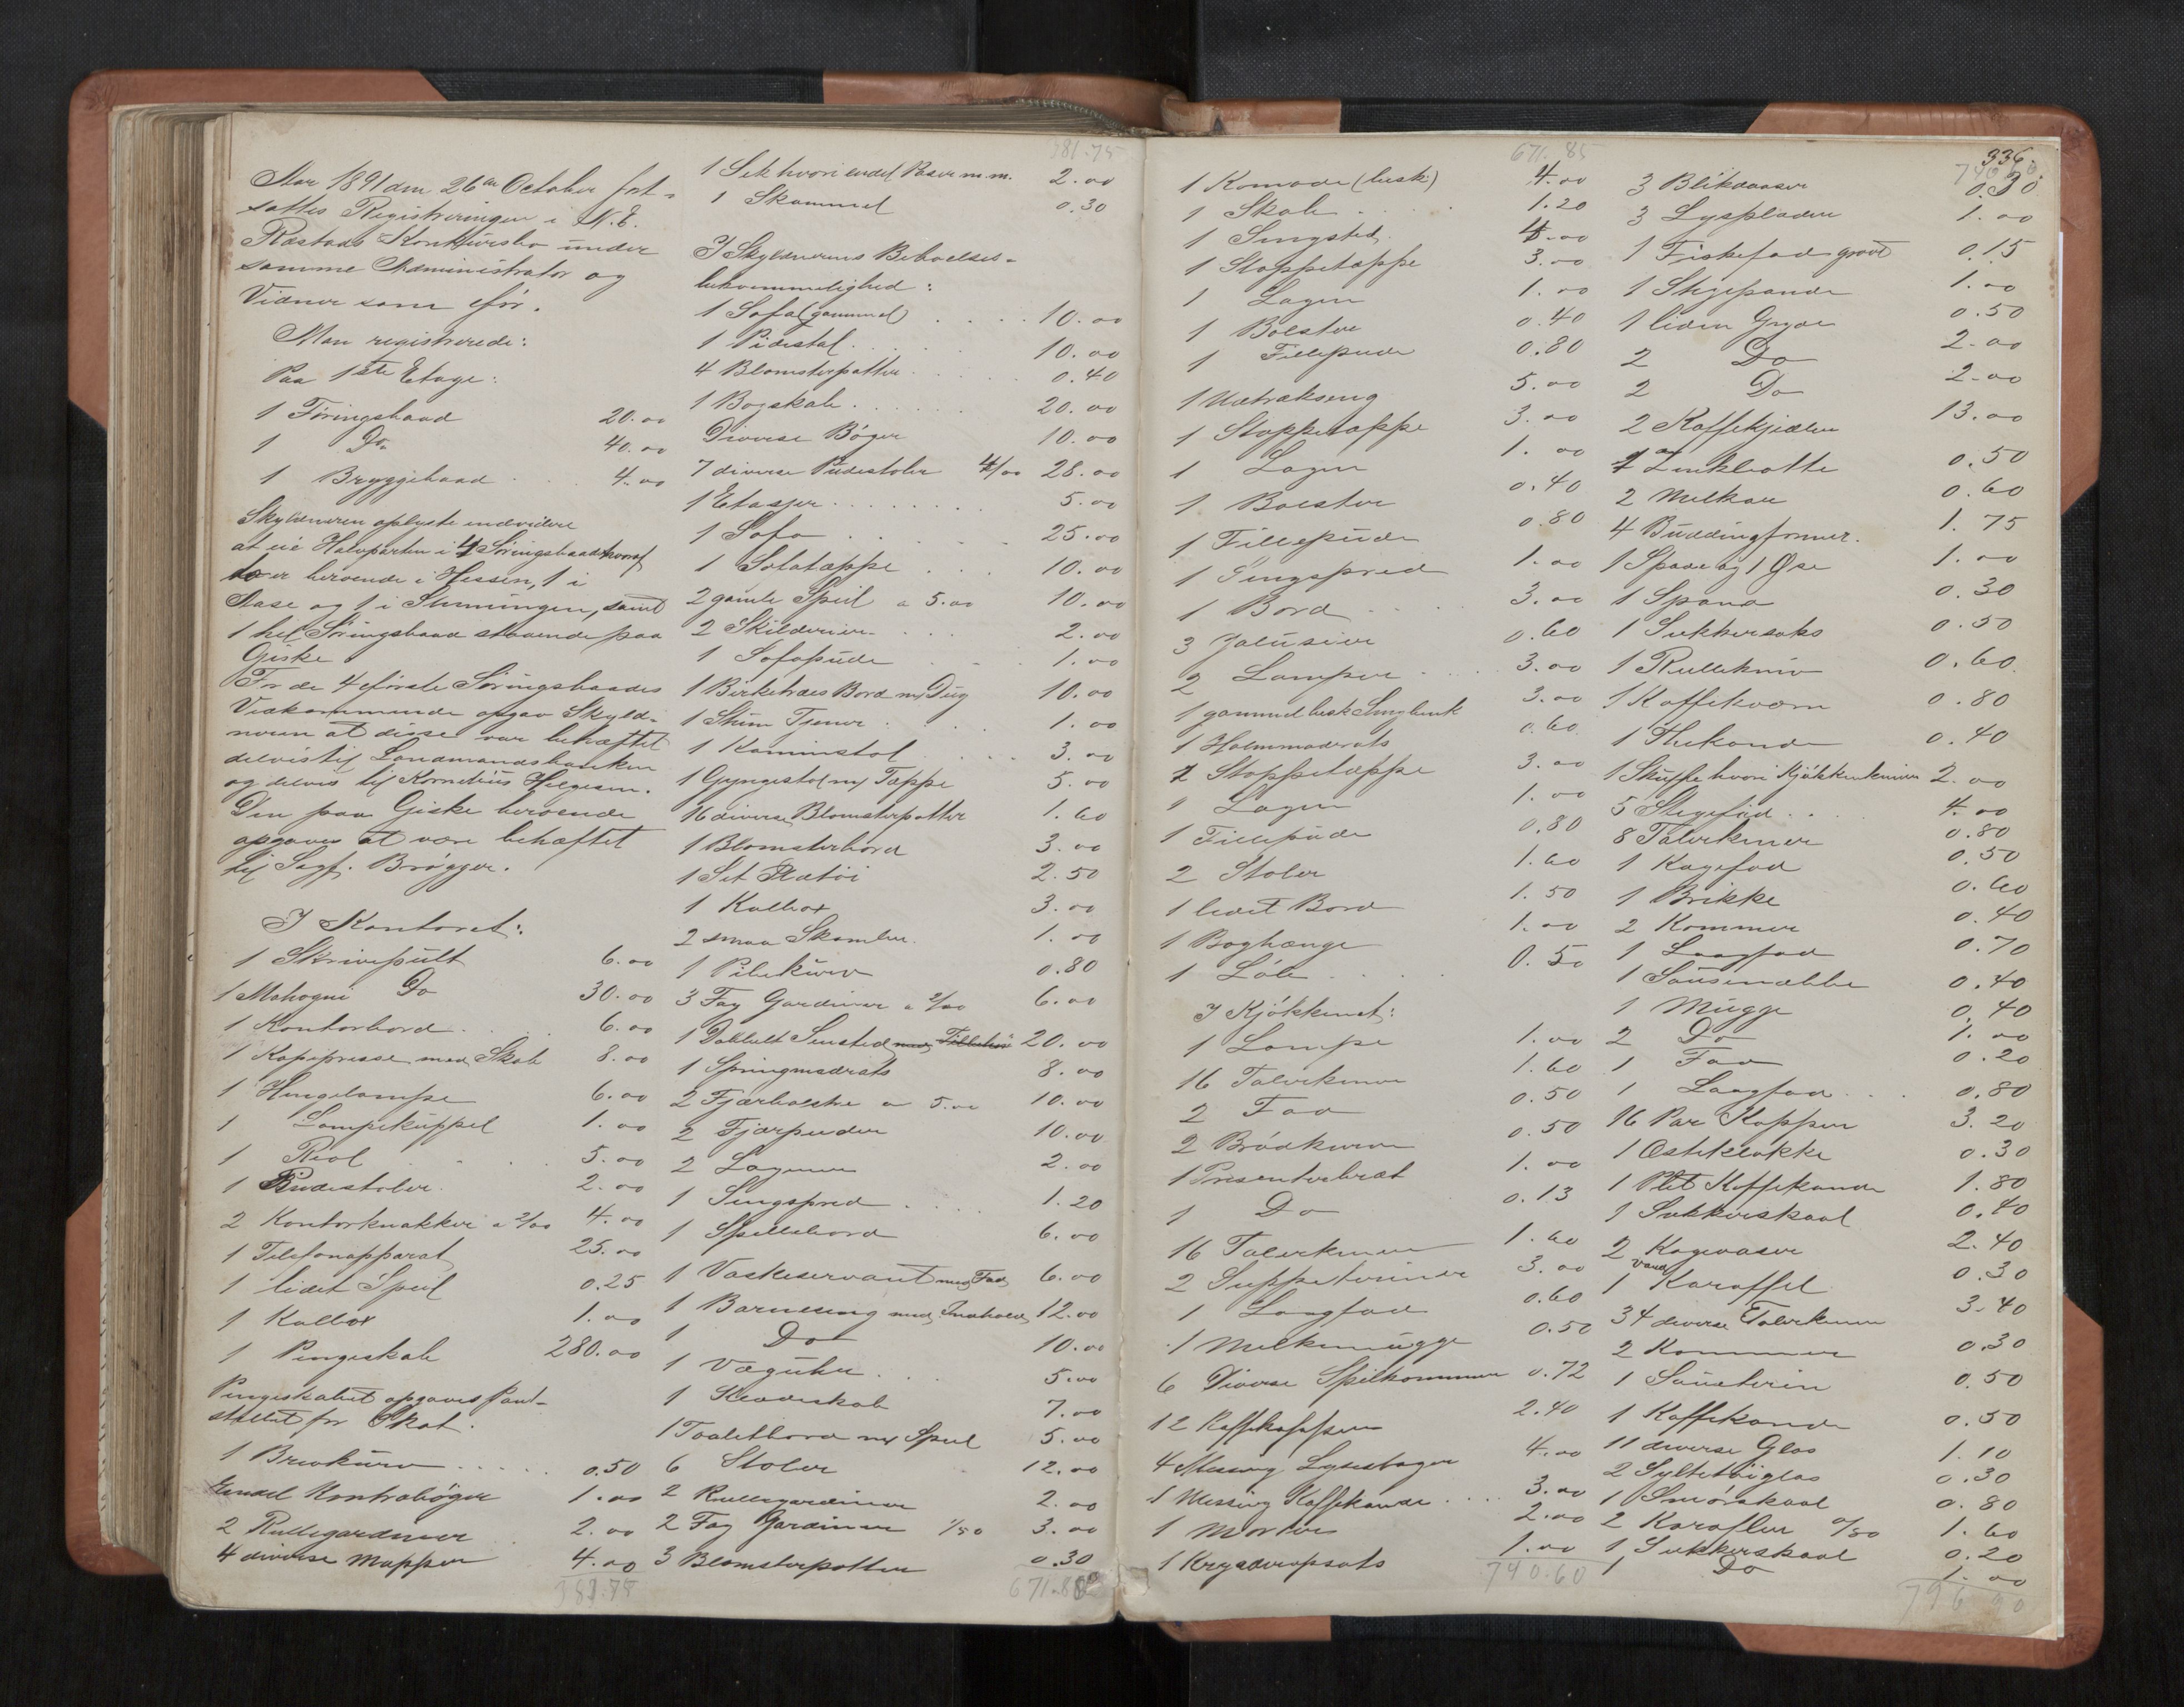 381.75
Aar 1891 den 26de October fort-
sattes Registreringen i N. E.
Røstads Konkursbo under
samme Administrator og
Vidner som før.
Man registrerede:
Paa 1ste Etage:
1 Føringsbaad 20.00
1 Do 40.00
1 Bryggebaad 4.00
Skyldneren oplyste endvidere
at eie Halvparten i 4 Føringsbaade hvoraf
beroende i Hessen, 1 i
Aase og 1 i Slinningen, samt
1 hel Føringsbaad staaende paa
Giske.
For de 4 første Føringsbaades
Vedkommende opgav Skyld-
neren at disse var behæftet
delvis til Landmandsbanken
og delvis til Kornelius Helgesen.
Den paa Giske beroende
opgaves at være behæftet
til Sagf. Brøgger.
I Kontoret:
1 Skrivepult 6.00
1 Mahogni Do 30.00
1 Kontorbord 6.00
1 Kopipresse med Skab 8.00
1 Hengelampe 6.00
1 Lampekuppel 1.00
1 Reol 5.00
1 Pindestoler 2.00
2 Kontorkrakker a 2/00 4.00
1 Telefonapparat 25.00
1 lidet Speil 0.25
1 Kulbox 1.00
1 Pengeskab 280.00
Pengeskabet opgaves pant-
stillet for Skat.
1 Brevkurv 0.50
Endel Kontrabøger 1.00
2 Rullegardiner 2.00
4 diverse Mapper 4.00
381.75
1 Sek hvori endel Poser m.m. 2.00
1 Skammel 0.30
I Skyldnerens Beboelses-
bekvemmelighed:
1 Sofa (gammel) 10.00
1 Pidestal 10.00
4 Blomsterpotter 0.40
1 Bogskab 20.00
Diverse Bøger 10.00
7 diverse Pindestoler 4/00 28.00
1 Etasjer 5.00
1 Sofa 25.00
1 Sofatæppe 10.00
2 gamle Speil a 5.00 10.00
2 Skilderier 2.00
1 Sofapude 1.00
1 Birketræs Bord m/ Dug 10.00
1 Stum Tjener 1.00
1 Kaminstol 3.00
1 Gyngestol m/ Tæppe 5.00
16 diverse Blomsterpotter 1.60
1 Blomsterbord 3.00
1 Set Ildtøi 2.50
1 Kulbox 3.00
2 smaa Skamler 1.00
1 Pilekurv 0.80
3 Fag Gardiner a 2/00 6.00
1 Dobbelt Sensted med Tilbehør 20.00
1 Springmadrats 8.00
2 Fjærbolstre a 5.00 10.00
2 Fjærpuder 10.00
2 Lagener 2.00
1 Sengspred 1.20
1 Spillebord 6.00
1 Vaskeservant med Fad 6.00
1 Barneseng med Indhold 12.00
1 Do 10.00
1 Væguhr 5.00
1 Klædeskab 7.00
1 Toaletbord m/ Speil 5.00
6 Stoler 12.00
2 Rullegardiner 2.00
2 Fag Gardiner 1/50 3.00
3 Blomsterpotter 0.30
671.85
671.85
1 Komode (besk:) 4.00
1 Skab 1.20
1 Sengsted 4.00
1 Stoppetæppe 3.00
1 Lagen 1.00
1 Bolster 0.40
1 Fillepude 0.80
1 Udtrækseng 5.00
1 Stoppetæppe 3.00
1 Lagen 1.00
1 Bolster 0.40
1 Fillepude 0.80
1 Sengspred 1.00
1 Bord 3.00
3 Jalusier 0.60
2 Lamper 3.00
1 gammel besk Sengbenk 3.00
1 Halmmadrats 0.60
1 Stoppetæppe 3.00
1 Lagen 1.00
1 Fillepude 0.80
2 Stoler 1.60
1 lidet Bord 1.50
1 Boghænge 1.00
1 Løb 0.50
I Kjøkkenet:
1 Lampe 1.00
16 Talerkener 1.60
2 Fad 0.50
2 Brødkurve 0.50
1 Presenterbræt 1.00
1 Do 0.13
16 Talerkener 1.60
2 Suppeteriner 3.00
1 Laagfad 0.60
1 Melkemugge 0.50
6 Diverse Spilkommer 0.72
12 Kaffekopper 2.40
4 Messing Lysestager 4.00
1 Messing Kaffekande 3.00
1 Morter 2.00
1 Krydderopsats 1.00
740.60
336.
740.60
3 Blikdaaser 0.30
3 Lysplader 1.00
1 Fiskefad grovt 0.15
1 Stegepande 1.00
1 liden Gryde 0.50
2 Do 2.00
2 Do 2.00
2 Kaffekjædler 13.00
1 Zinkbøtte 0.50
2 Melkau 0.60
4 Buddingformer. 1.75
1 Spade og 1 Øse 1.00
1 Spand 0.30
1 Sukkersaks 0.50
1 Rullekniv 0.60
1 Kaffekværn 0.80
1 Thekande 0.40
1 Skuffe hvori Kjøkkenkniver 2.00
5 Stegefad 4.00
8 Talerkener 0.80
1 Kagefad 0.50
1 Brikke 0.60
2 Kommer 0.40
1 Laagfad 0.70
1 Sausenæbbe 0.40
1 Mugge 0.40
2 Do 1.00
1 Fad 0.20
1 Laagfad 0.80
16 Par Kopper 3.20
1 Osteklokke 0.30
1 Plet Kaffekande 1.80
1 Sukkerskaal 0.40
2 Kagevaser 2.40
1 Vand Karaffel 0.30
34 diverse Talerkener 3.40
2 Kommer 0.30
1 Sauceterin 0.50
1 Kaffekande 0.50
11 diverse Glas 1.10
2 Syltetøiglas 0.30
1 Smørskaal 0.80
2 Karafler 0/80 1.60
1 Sukkerskaal 0.20
1 Do 1.00